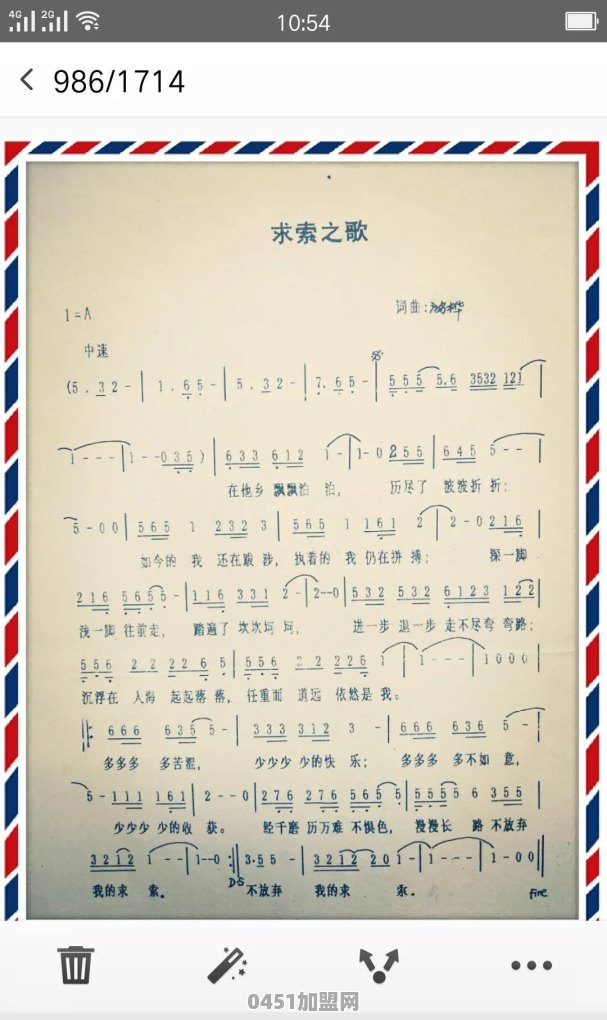 4G 2G 10:54
986/1714
求索之歌
1=A
词曲:
中速
(5 . 3 2 - | 1 . 6 5 - | 5 . 3 2 - | 7. 6 5 - | 5 5 5 5.6 3532 121 |
1 - - - | 1 - -0 3 5 ) | 6 3 3 6 1 2 1 - | 1- 0 2 5 5 | 6 4 5 5 - - |
在他乡 飘飘泊 泊, 历尽了 波波折 折;
5 - 0 0 | 5 6 5 1 2 3 2 3 | 5 6 5 1 1 6 1 2 | 2 - 0 2 1 6 |
如今的 我 还在跋 涉, 执着的 我 仍在拼 搏; 深一脚
2 1 6 5 6 5 5 - | 1 1 6 3 3 1 2 - | 2--0 | 5 3 2 5 3 2 6 1 2 3 1 2 2 |
浅一脚 往前走, 踏遍了 坎坎坷 坷, 进一步 退一步 走不尽弯 弯路;
5 5 6 2 2 2 2 6 5 | 5 5 6 2 2 2 2 6 1 | 1 - - - | 1 0 0 0 |
沉浮在 人海 起起落 落, 任重而 道远 依然是 我。
6 6 6 6 3 5 5 - | 3 3 3 3 1 2 3 - | 6 6 6 6 3 6 5 - |
多多多 多苦混, 少少少 少的快 乐; 多多多 多不如 意,
5 - 1 1 1 1 6 1 | 2 - - 0 | 2 7 6 2 7 6 5 6 5 5 | 5 5 5 5 6 3 5 5 |
少少少 少的收 获。 经千磨 历万难 不惧色, 漫漫长 路 不放弃
3 2 1 2 1 - - | 1--0 :| 3·5 5 - | 3 2 1 2 2 0 1 - | 1 - - - | 1 - 0 0 ||
我的求 索. D·S 不放弃 我的求 索. Fine
0451加盟网